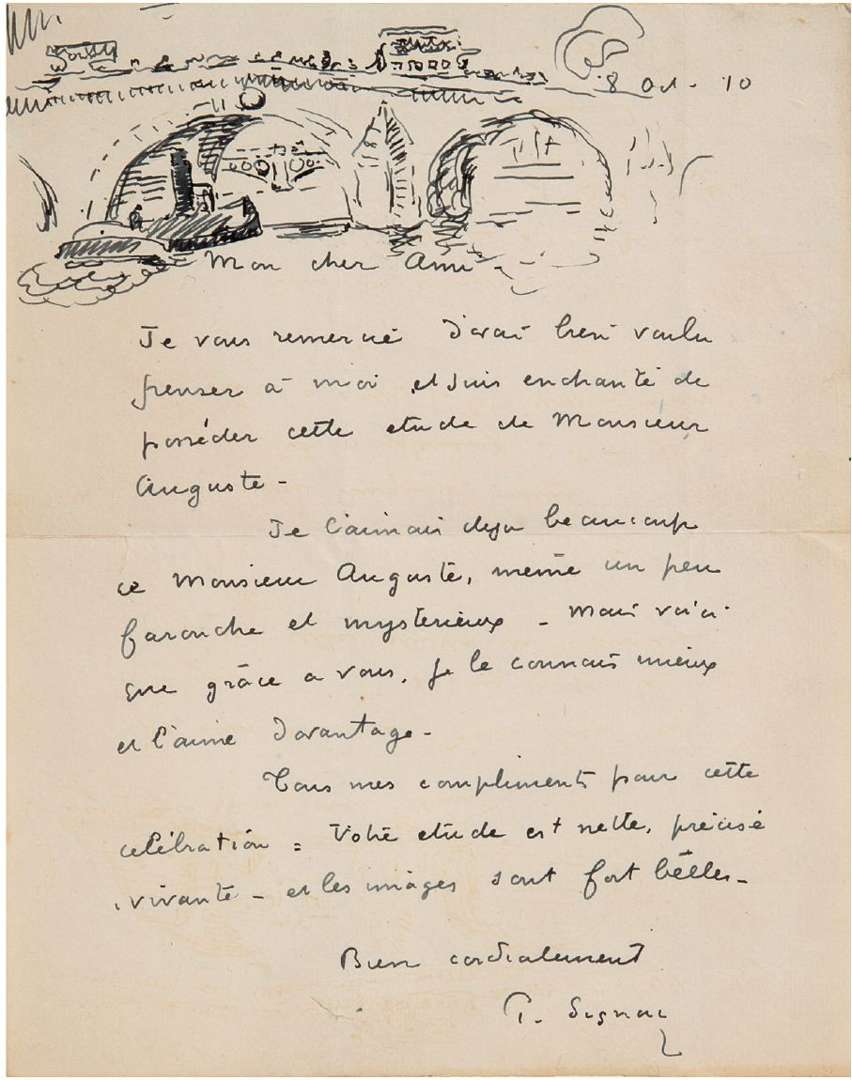 8 Oct - 10
Mon cher Ami
Je vous remercie d'avoir bien voulu
penser à moi, et suis enchanté de
posséder cette etude de Monsieur
Auguste -
Je l'aimais deja beaucoup
ce Monsieur Auguste, même un peu
farouche et mysterieux - mais voici
que grâce a vous, je le connais mieux
et l'aime davantage -
Tous mes compliments pour cette
celébration = Votre etude est nette, précise
, vivante - et les images sont fort belles -
Bien cordialement
P. Signac